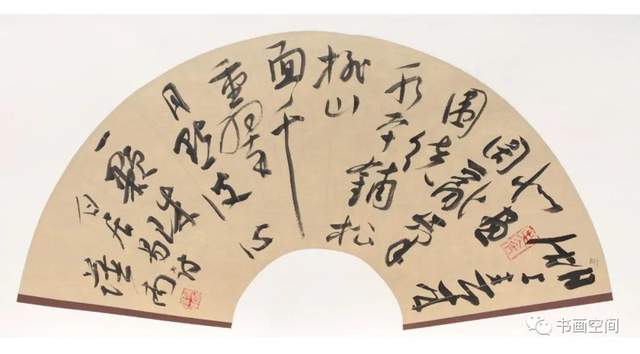 湖上春来
似画
图乱峰
围绕
水平铺松
排山
面千
重翠
月点波心
一颗珠
白居易诗
书画空间